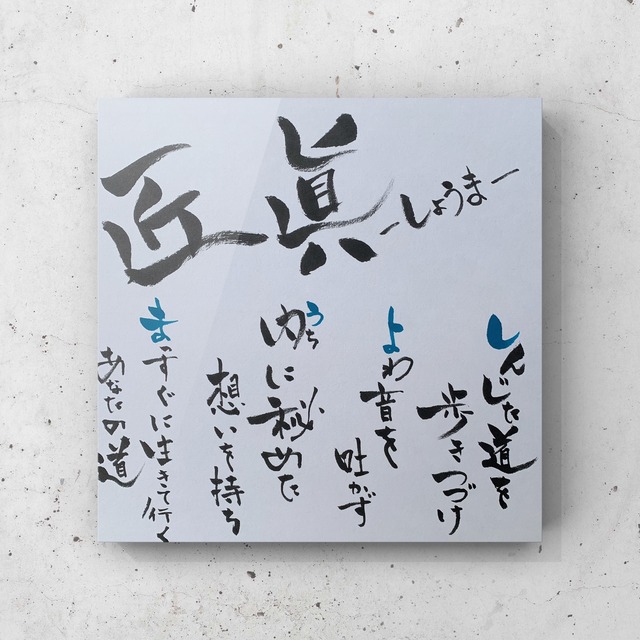 匠眞 -しょうま-
しんじた道を
歩きつづけ
よわ音を
吐かず
内うちに秘めた
想いを持ち
まっすぐに生きて行く
あなたの道